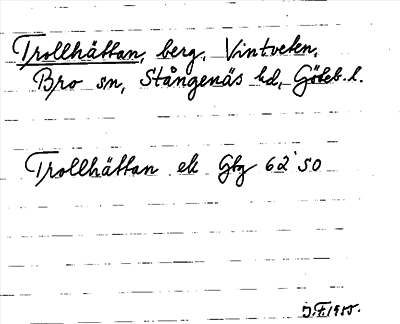 Trollhättan, berg, Vintveten,
Bro sn, Stångenäs hd, Göteb. l.
Trollhättan ek Gbg 62 SO
J.F. 1955.